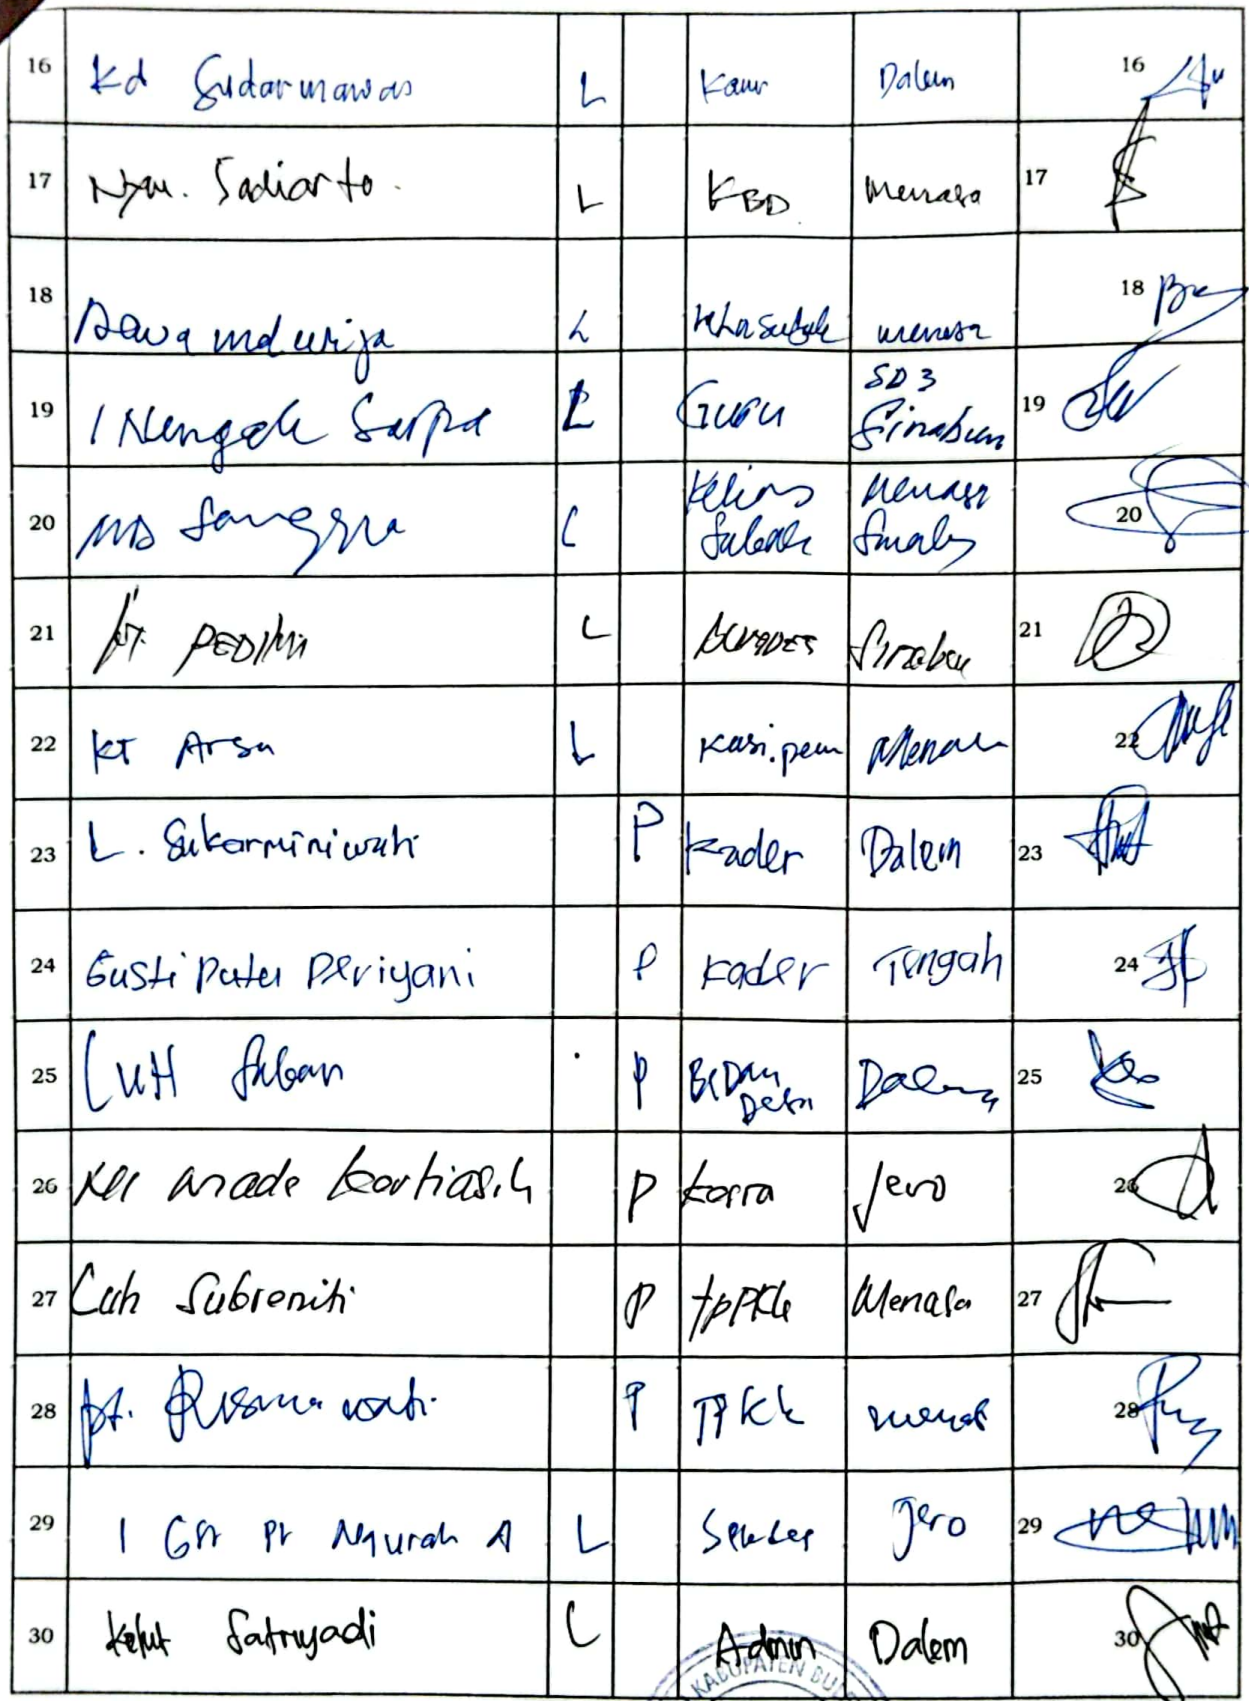 16 Kd Sudarmawan L Kaur Dalem 16
17 Nym. Sadiarto. L KBD Menasa 17
18 Dewa Md Wija L Menasa 18
SD 3
19 I Nengah Sarpa L Guru Sinabun 19
Kelian Menasa
20 Md L Subak 20
21 Pt. L Sinabun 21
22 KT Arsa L Kasi.pem Menasa 22
23 L. Sukarminiwati P Kader Dalem 23
24 Gusti Putu Periyani P Kader Tengah 24
25 LUH P BIDAN Dalem 25
Desa
26 Made Kartiasih P Jero 26
27 Luh Subreniti P TPPKK Menasa 27
28 pt. Rismawati P TPKK menas 28
29 I Gst Pt Ngurah A L Sekdes Jero 29
30 Ketut Satriyadi L Admin Dalem 30
KABUPATEN BUL